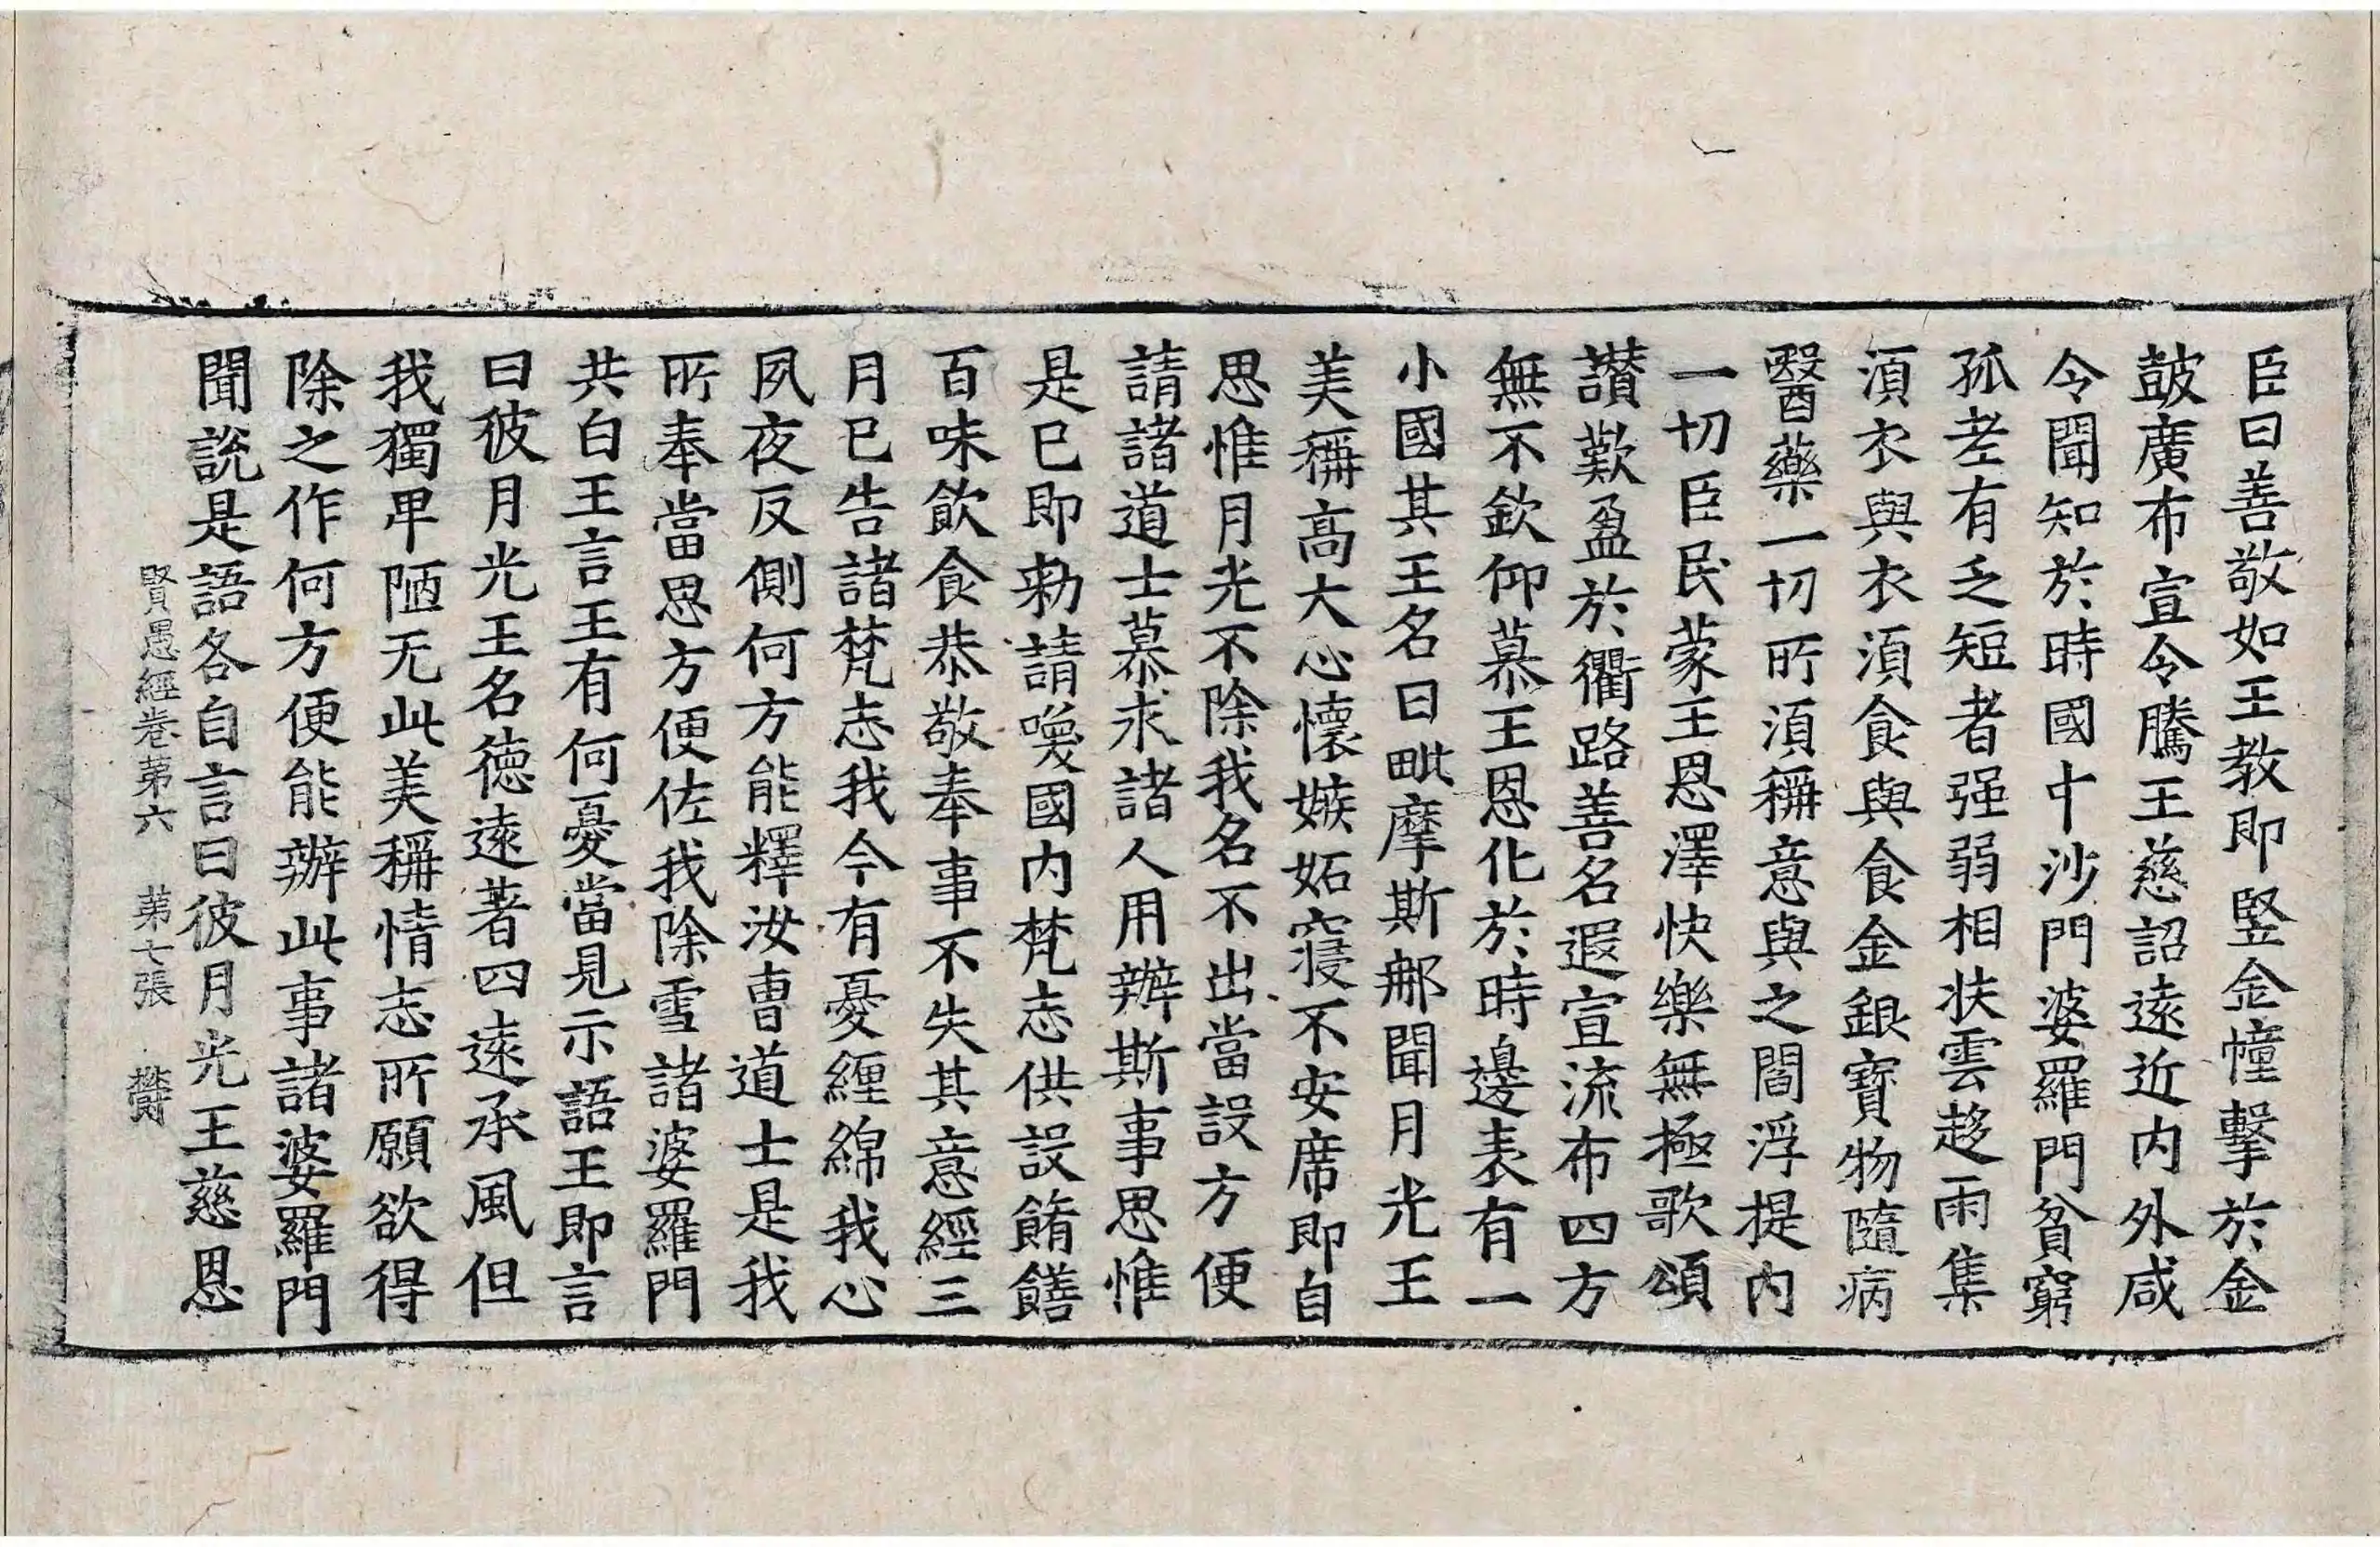 臣曰善敬如王教即竪金幢擊於金
皷廣布宣令騰王慈詔遠近内外咸
令聞知於時國中沙門婆羅門貧窮
孤老有乏短者强弱相扶雲趍雨集
湏衣與衣湏食與食金銀寳物隨病
醫藥一切所湏稱意與之閻浮提内
一切臣民蒙王恩澤快樂無極歌頌
讃歎盈於衢路善名遐宣流布四方
無不欽仰慕王恩化於時邊表有一
小國其王名曰毗摩斯那聞月光王
美稱高大心懷嫉妬寢不安席即自
思惟月光不除我名不出當設方便
請諸道士慕求諸人用辦斯事思惟
是已即勑請喚國内梵志供設餚饍
百味飲食恭敬奉事不失其意經三
月已告諸梵志我今有憂纏綿我心
夙夜反側何方能釋汝曹道士是我
所奉當思方便佐我除雪諸婆羅門
共白王言王有何憂當見示語王即言
曰彼月光王名徳遠著四遠承風但
我獨卑陋无此美稱情志所願欲得
除之作何方便能辦此事諸婆羅門
聞說是語各自言曰彼月光王慈恩
賢愚經卷第六　第七張